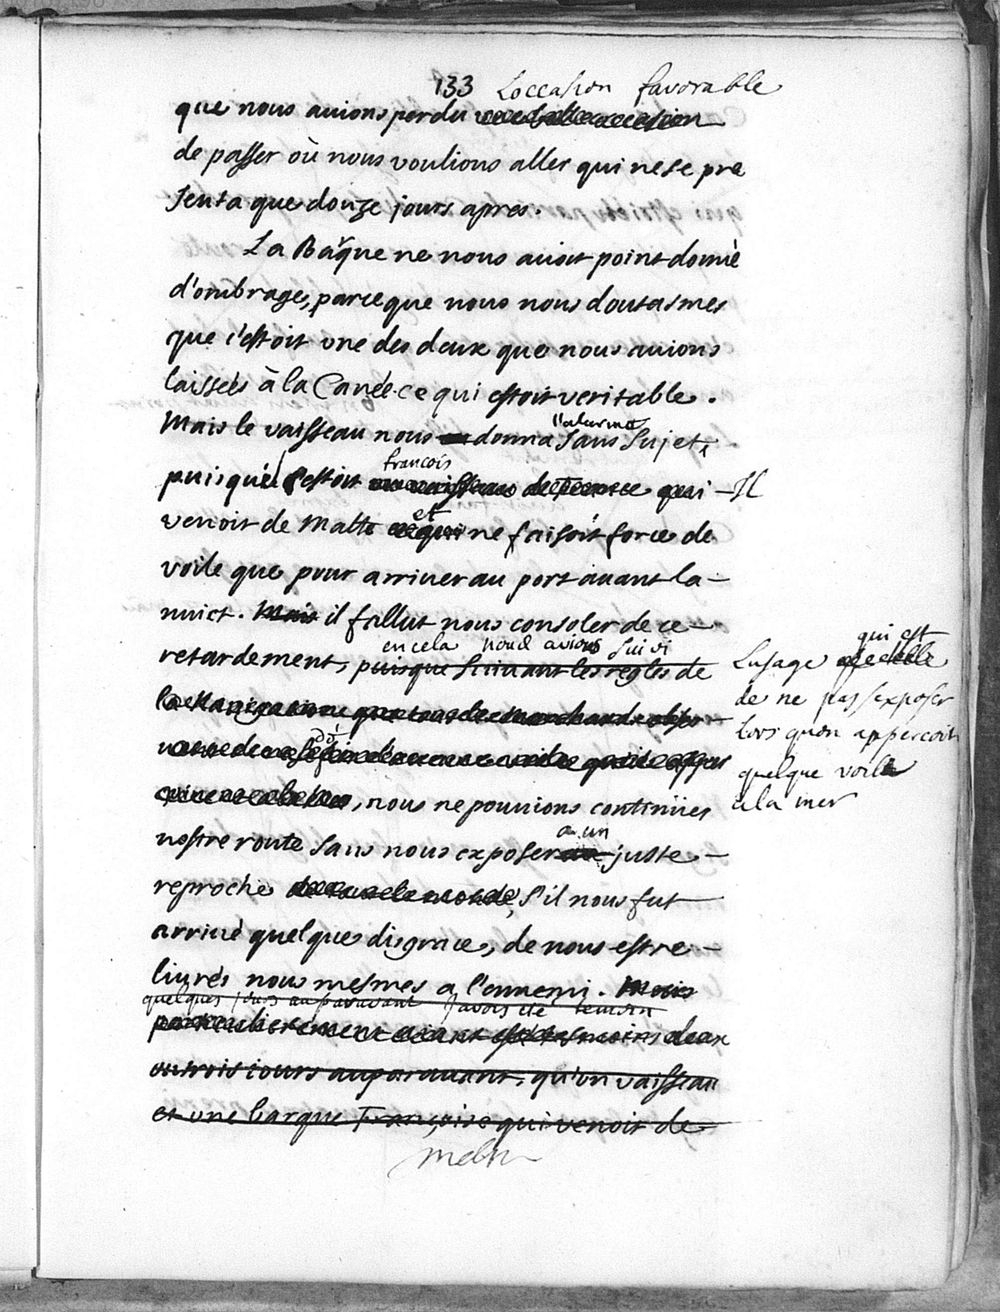 133 Loccasion favorable
que nous auions perdu
de passer où nous voulions aller qui ne se pre
senta que douze jours apres.
La Barque ne nous auoit point donné
d'ombrage, parce que nous nous doutasmes
que c'estoit vne des deux que nous auions
laissées à la Canée. ce qui estoit veritable.
l'alarme
Mais le vaisseau nous donna sans sujet,
francois
puisque c'estoit un vaisseau de France qui — Il
et
venoit de Malte ce qui ne faisoit force de
voile que pour arriuer au port auant la
nuict. Mais il fallut nous consoler de ce
en cela nous avions suivi
retardement, puisque suiuant les regles de
Lusage qui est
de ne pas sexposer
lors quon appercoit
quelque voile
a la mer
la Nauigation que tous les marchands
, nous ne pouuions continüer
a un
nostre route sans nous exposer au juste
reproche de tout le monde, s'il nous fut
arriué quelque disgrace, de nous estre
liurés nous mesmes a l'ennemi. Mais
quelques jours auparavant Javois eté temoin
particulierement aiant esté tesmoins deux
ou trois iours auparauant, qu'un vaisseau
et une barque Françoise qui venoit de